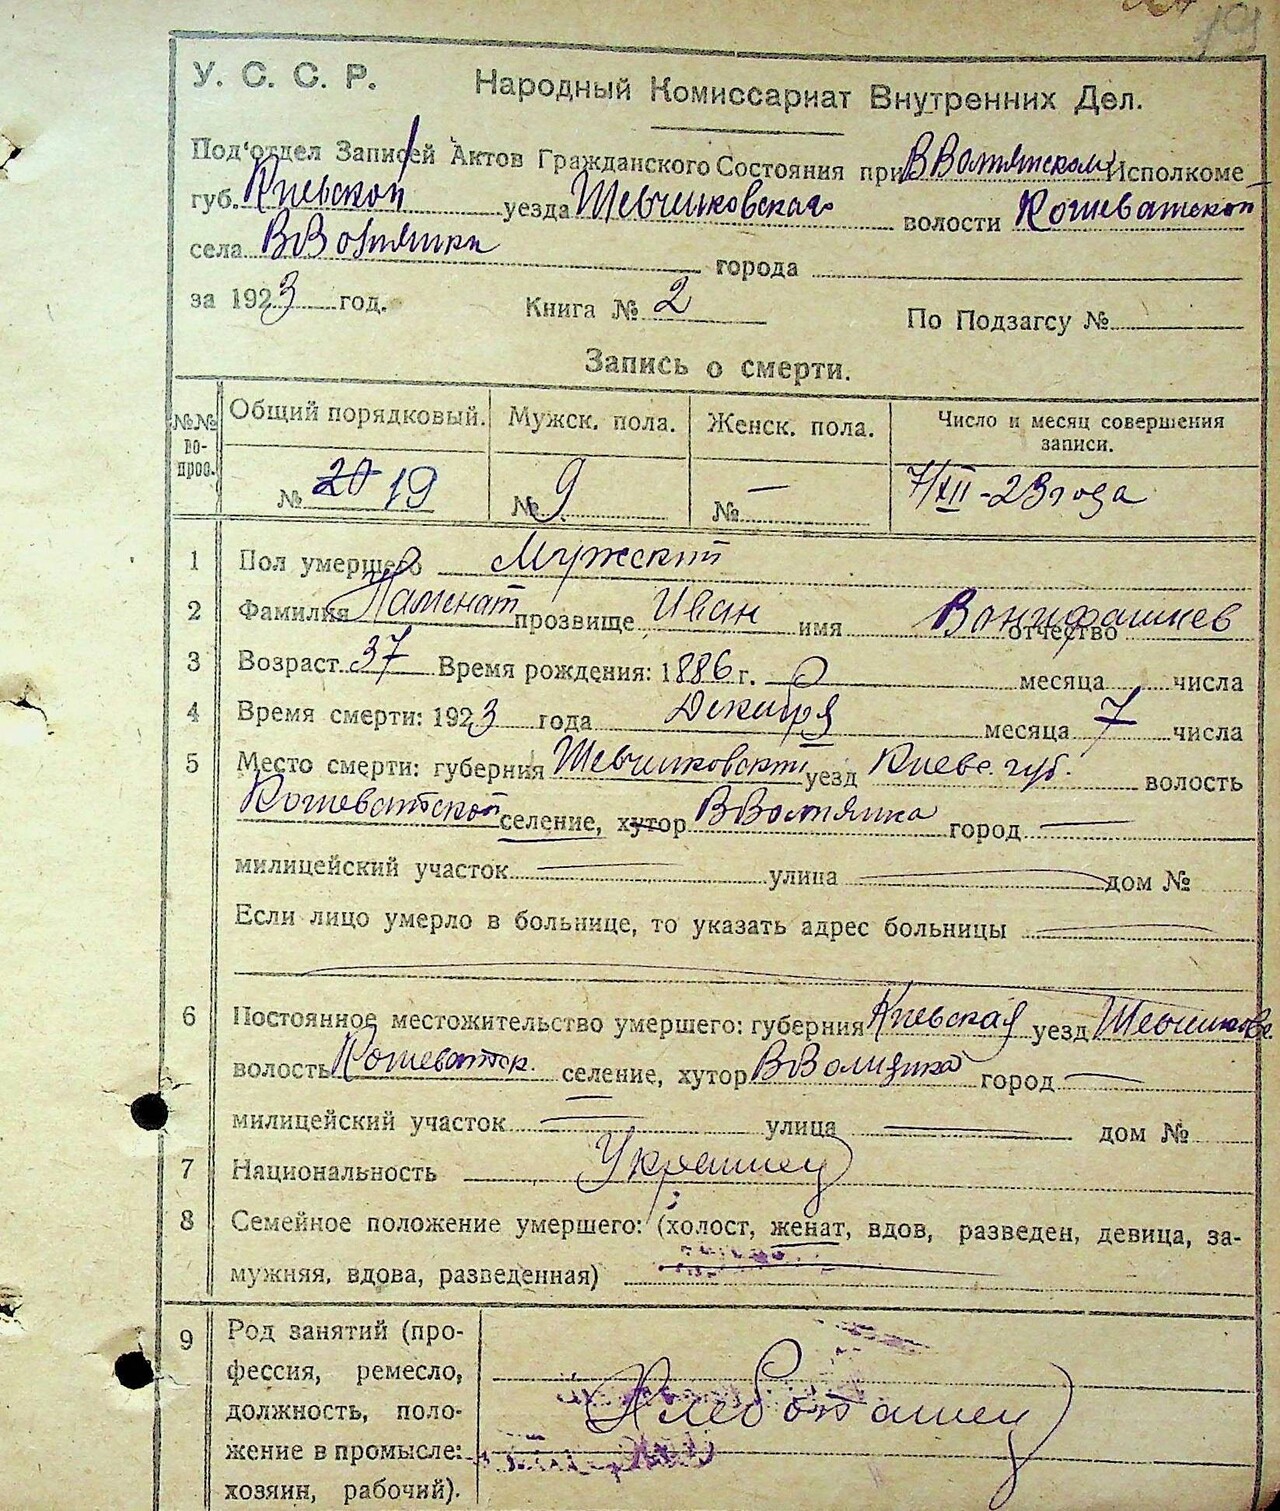 19
У. С. С. Р. Народный Комиссариат Внутренних Дел.
Под'отдел Записей Актов Гражданского Состояния при ВВолнянском Исполкоме
губ. Киевской уезда Шевченковская волости Кошеватской
села ВВолнянки города
за 1923 год. Книга № 2 По Подзагсу №
Запись о смерти.
№№ во-прос. Общий порядковый. Мужск. пола. Женск. пола. Число и месяц совершения записи.
№ 20 19 № 9 № — 7/XII-23 года
1 Пол умершего Мужский
2 Фамилия прозвище Иван имя отчество
3 Возраст 37 Время рождения: 1886 г. месяца числа
4 Время смерти: 1923 года Декабря месяца 7 числа
5 Место смерти: губерния Шевченковский уезд Киевс. губ. волость
Кошеватской селение, хутор город —
милицейский участок — улица — дом №
Если лицо умерло в больнице, то указать адрес больницы —
6 Постоянное местожительство умершего: губерния Киевская уезд Шевченковс.
волость Кошеватск. селение, хутор город —
милицейский участок — улица — дом №
7 Национальность Украинец
8 Семейное положение умершего: (холост, женат, вдов, разведен, девица, за-
мужняя, вдова, разведенная)
9 Род занятий (про-
фессия, ремесло,
должность, поло- Хлебопашец
жение в промысле:
хозяин, рабочий).